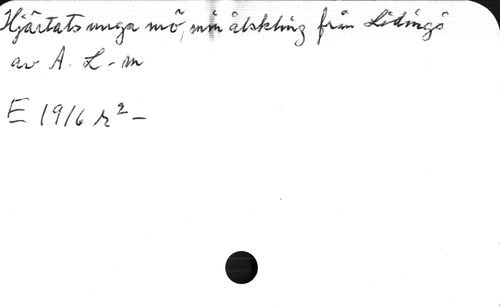 Hjärtats unga mö, min älskling från Lidingö
av A. L-m
E 1916 r² -